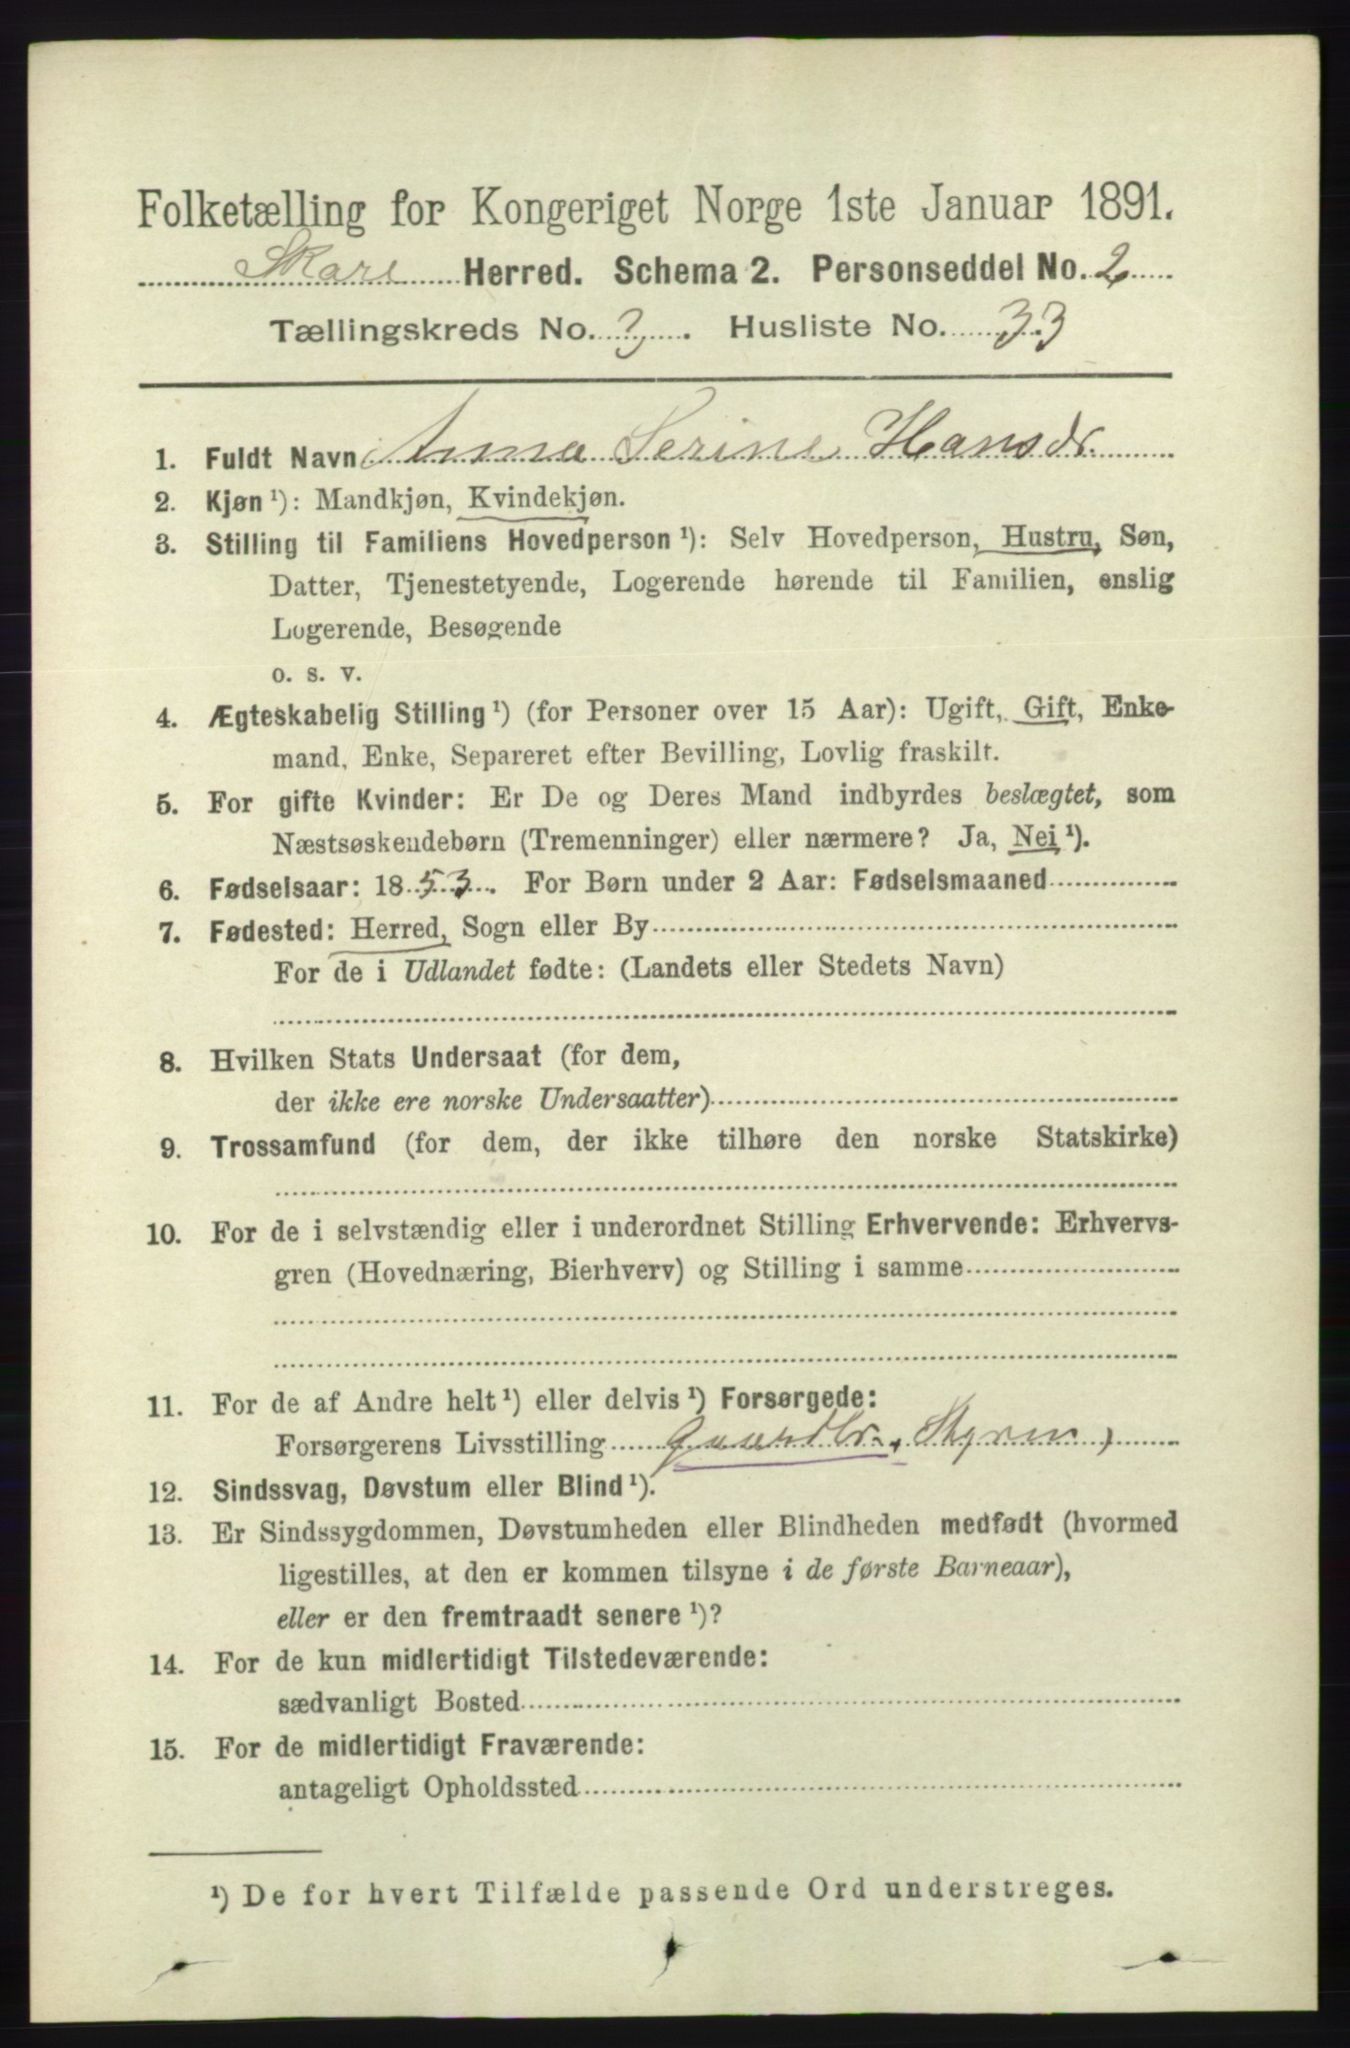 Folketælling for Kongeriget Norge 1ste Januar 1891.
Skare Herred. Schema 2. Personseddel No. 2
Tællingskreds No. 3. Husliste No. 33
1. Fuldt Navn Anna Serine Hansdr.
2. Kjøn ¹): Mandkjøn, Kvindekjøn.
3. Stilling til Familiens Hovedperson ¹): Selv Hovedperson, Hustru, Søn,
Datter, Tjenestetyende, Logerende hørende til Familien, enslig
Logerende, Besøgende
o. s. v.
4. Ægteskabelig Stilling ¹) (for Personer over 15 Aar): Ugift, Gift, Enke-
mand, Enke, Separeret efter Bevilling, Lovlig fraskilt.
5. For gifte Kvinder: Er De og Deres Mand indbyrdes beslægtet, som
Næstsøskendebørn (Tremenninger) eller nærmere? Ja, Nei ¹).
6. Fødselsaar: 1853. For Børn under 2 Aar: Fødselsmaaned
7. Fødested: Herred, Sogn eller By
For de i Udlandet fødte: (Landets eller Stedets Navn)
8. Hvilken Stats Undersaat (for dem,
der ikke ere norske Undersaatter)
9. Trossamfund (for dem, der ikke tilhøre den norske Statskirke)
10. For de i selvstændig eller i underordnet Stilling Erhvervende: Erhvervs-
gren (Hovednæring, Bierhverv) og Stilling i samme
11. For de af Andre helt ¹) eller delvis ¹) Forsørgede:
Forsørgerens Livsstilling Gaardbr.
12. Sindssvag, Døvstum eller Blind ¹).
13. Er Sindssygdommen, Døvstumheden eller Blindheden medfødt (hvormed
ligestilles, at den er kommen tilsyne i de første Barneaar),
eller er den fremtraadt senere ¹)?
14. For de kun midlertidigt Tilstedeværende:
sædvanligt Bosted
15. For de midlertidigt Fraværende:
antageligt Opholdssted
¹) De for hvert Tilfælde passende Ord understreges.